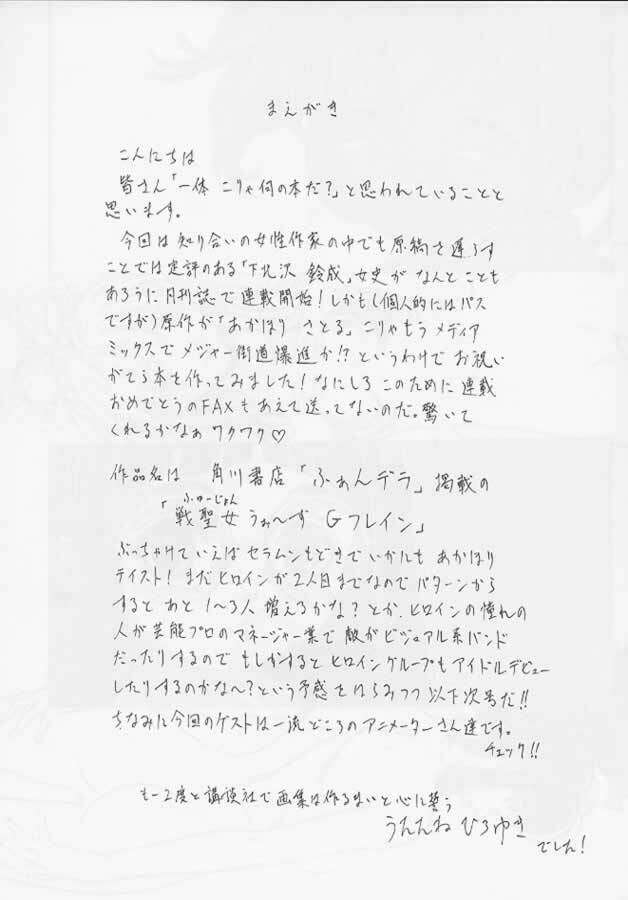 まえがき
こんにちは
皆さん「一体 こりゃ何の本だ?」と思われていることと
思います。
今回は知り合いの女性作家の中でも原稿を遅らす
ことでは定評のある「下北沢 鈴成」女史が なんと こともあ
ろうに月刊誌で連載開始!しかも(個人的にはパス
ですが)原作が「あかほり さとる」こりゃもう メディア
ミックスで メジャー街道爆進か!?というわけで お祝い
がてら本を作ってみました!なにしろ このために連載
おめでとうのFAXもあえて送ってないのだ。驚いて
くれるかなぁ ワクワク♡
作品名は 角川書店「ふぁんデラ」掲載の
ふゅーじょん
「戦聖女 うぉ〜ず Gフレイン」
ぶっちゃけていえばセラムンもどきで いかにも あかほり
テイスト! まだヒロインが2人目までなので パターンから
すると あと 1〜3人 増えるかな? とか、ヒロインの憧れの
人が芸能プロのマネージャー業で 敵がビジュアル系バンド
だったりするので もしかすると ヒロイングループも アイドルデビュー
したりするのかな〜?という予感をはらみつつ 以下次号だ!!
ちなみに今回のゲストは一流どころのアニメーターさん達です。
チェック!!
もー2度と講談社で画集は作るまいと心に誓う
うたたね ひろゆき
でした!